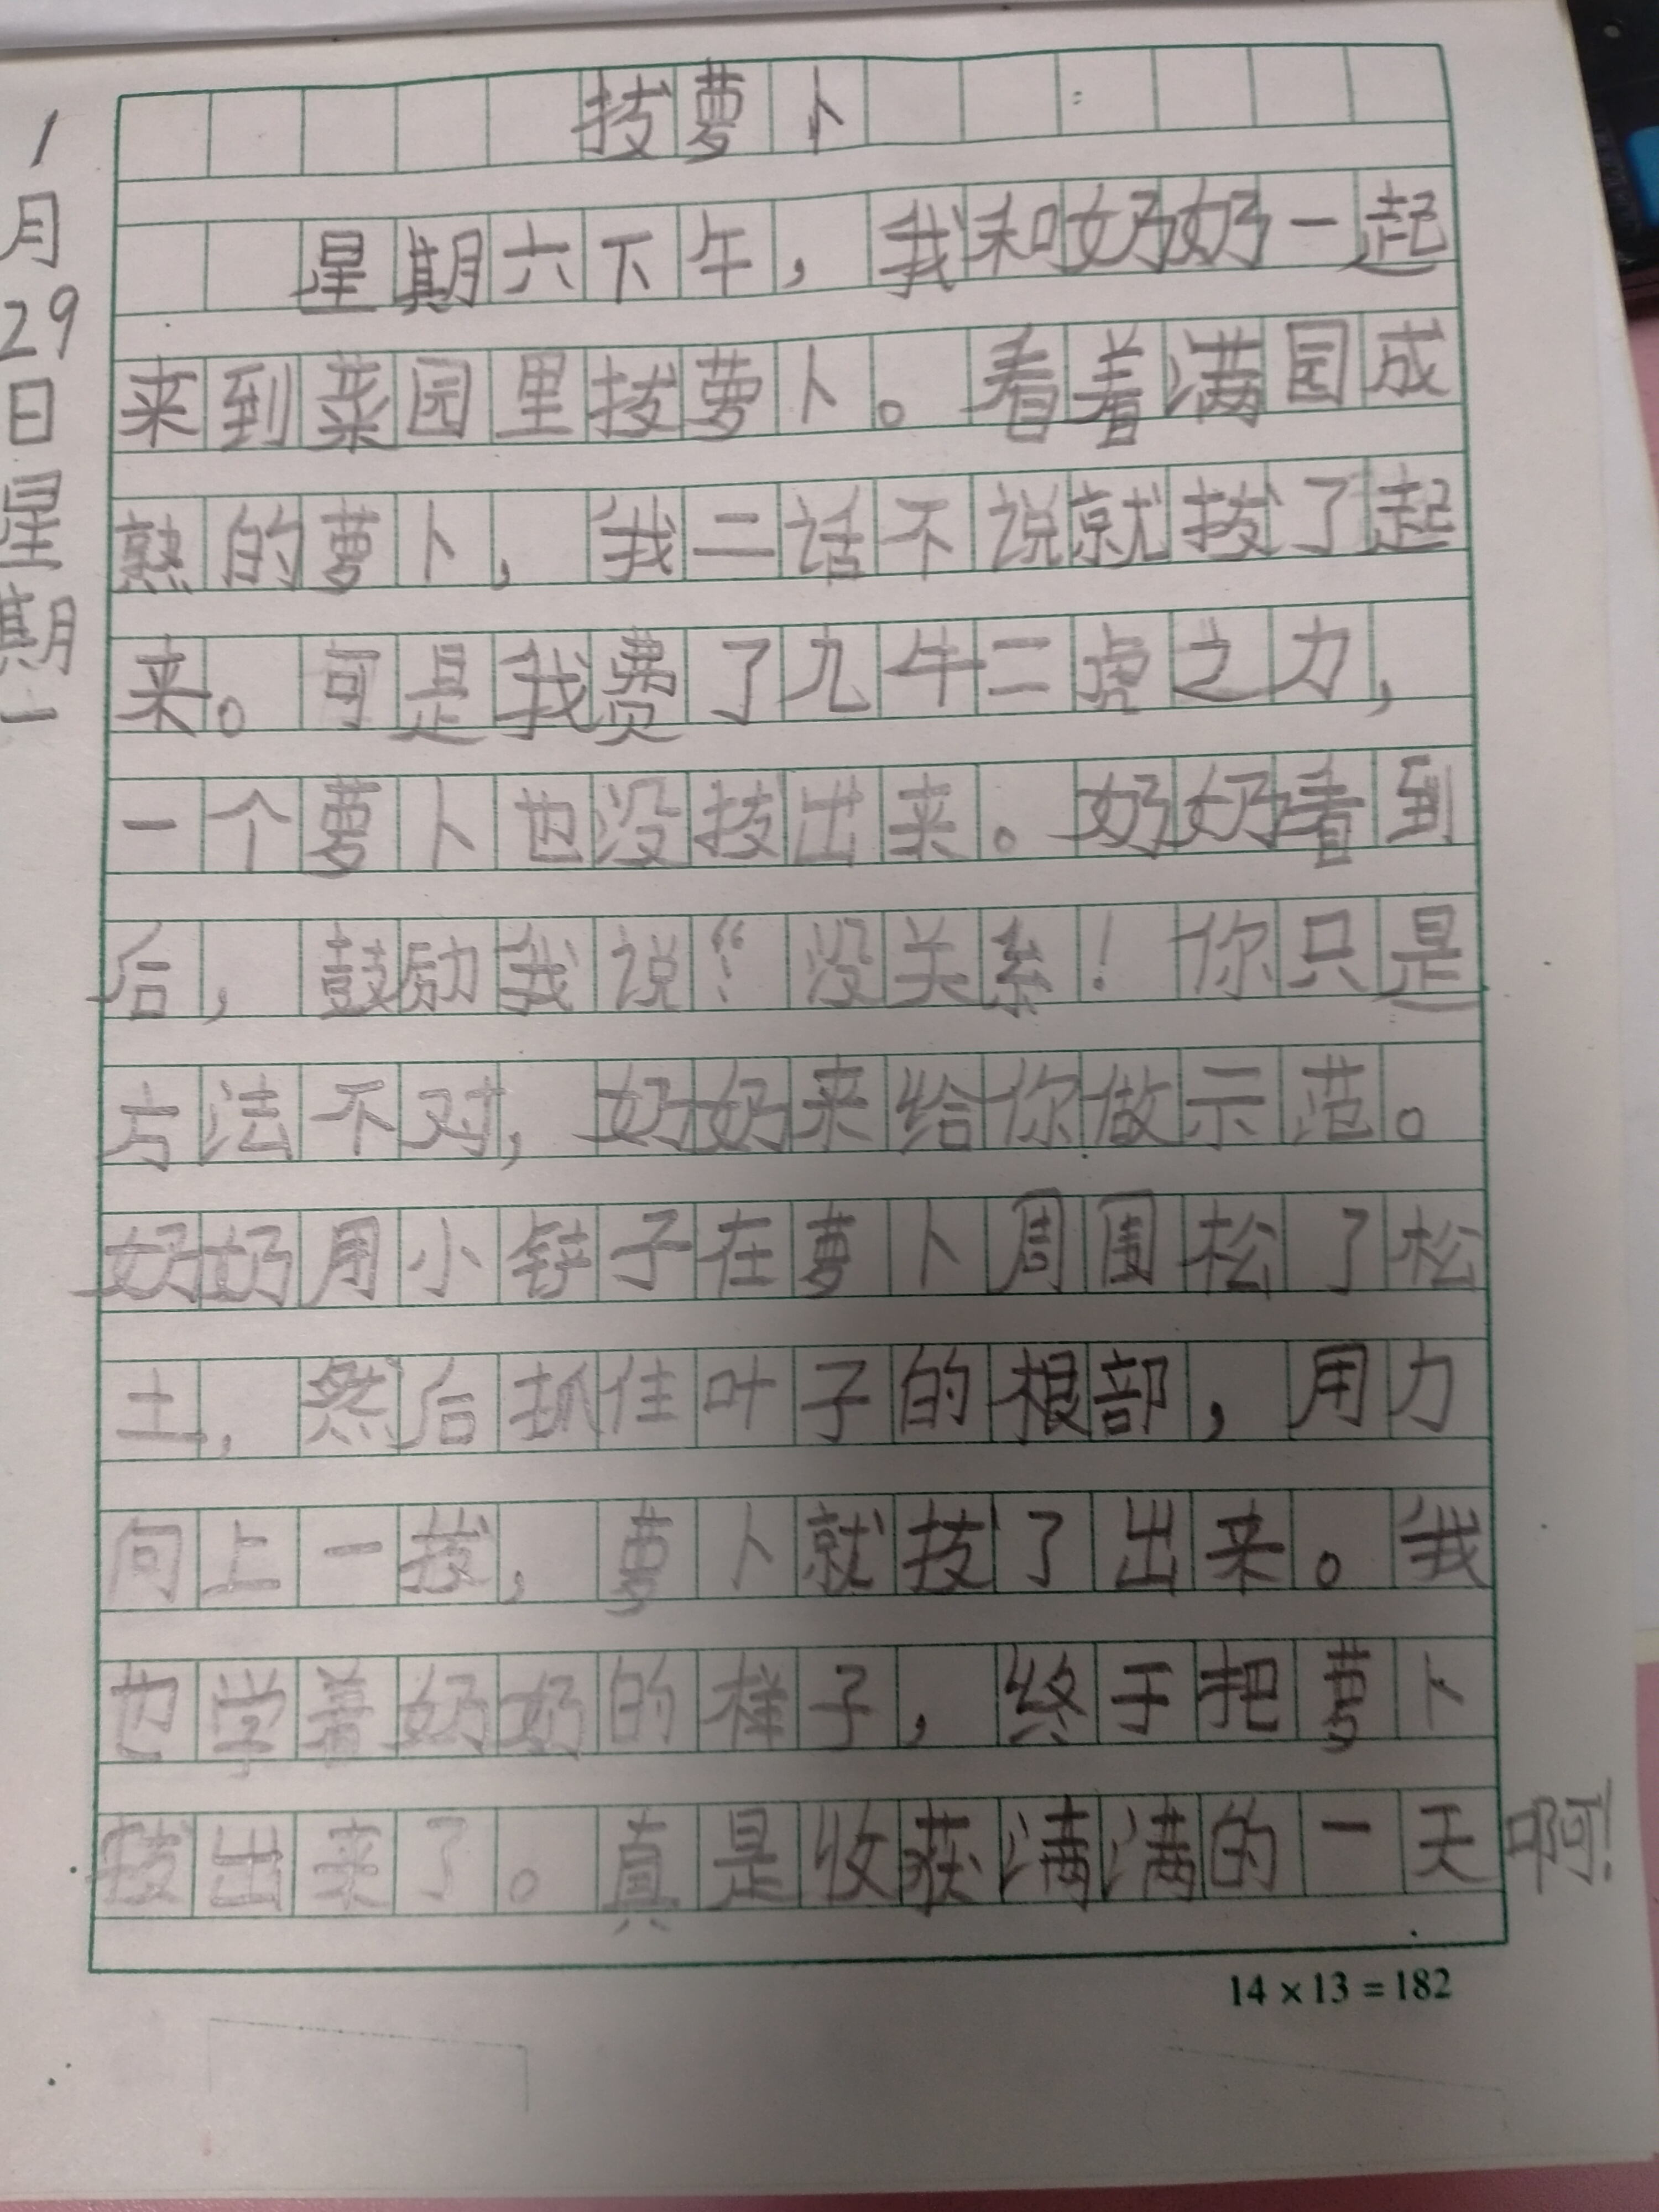 拔萝卜
1月29日星期一
星期六下午，我和奶奶一起
来到菜园里拔萝卜。看着满园成
熟的萝卜，我二话不说就拔了起
来。可是我费了九牛二虎之力，
一个萝卜也没拔出来。奶奶看到
后，鼓励我说：“没关系！你只是
方法不对，奶奶来给你做示范。
奶奶用小锌子在萝卜周围松了松
土，然后抓住叶子的根部，用力
向上一拔，萝卜就拔了出来。我
也学着奶奶的样子，终于把萝卜
拔出来了。真是收获满满的一天啊！
14×13=182